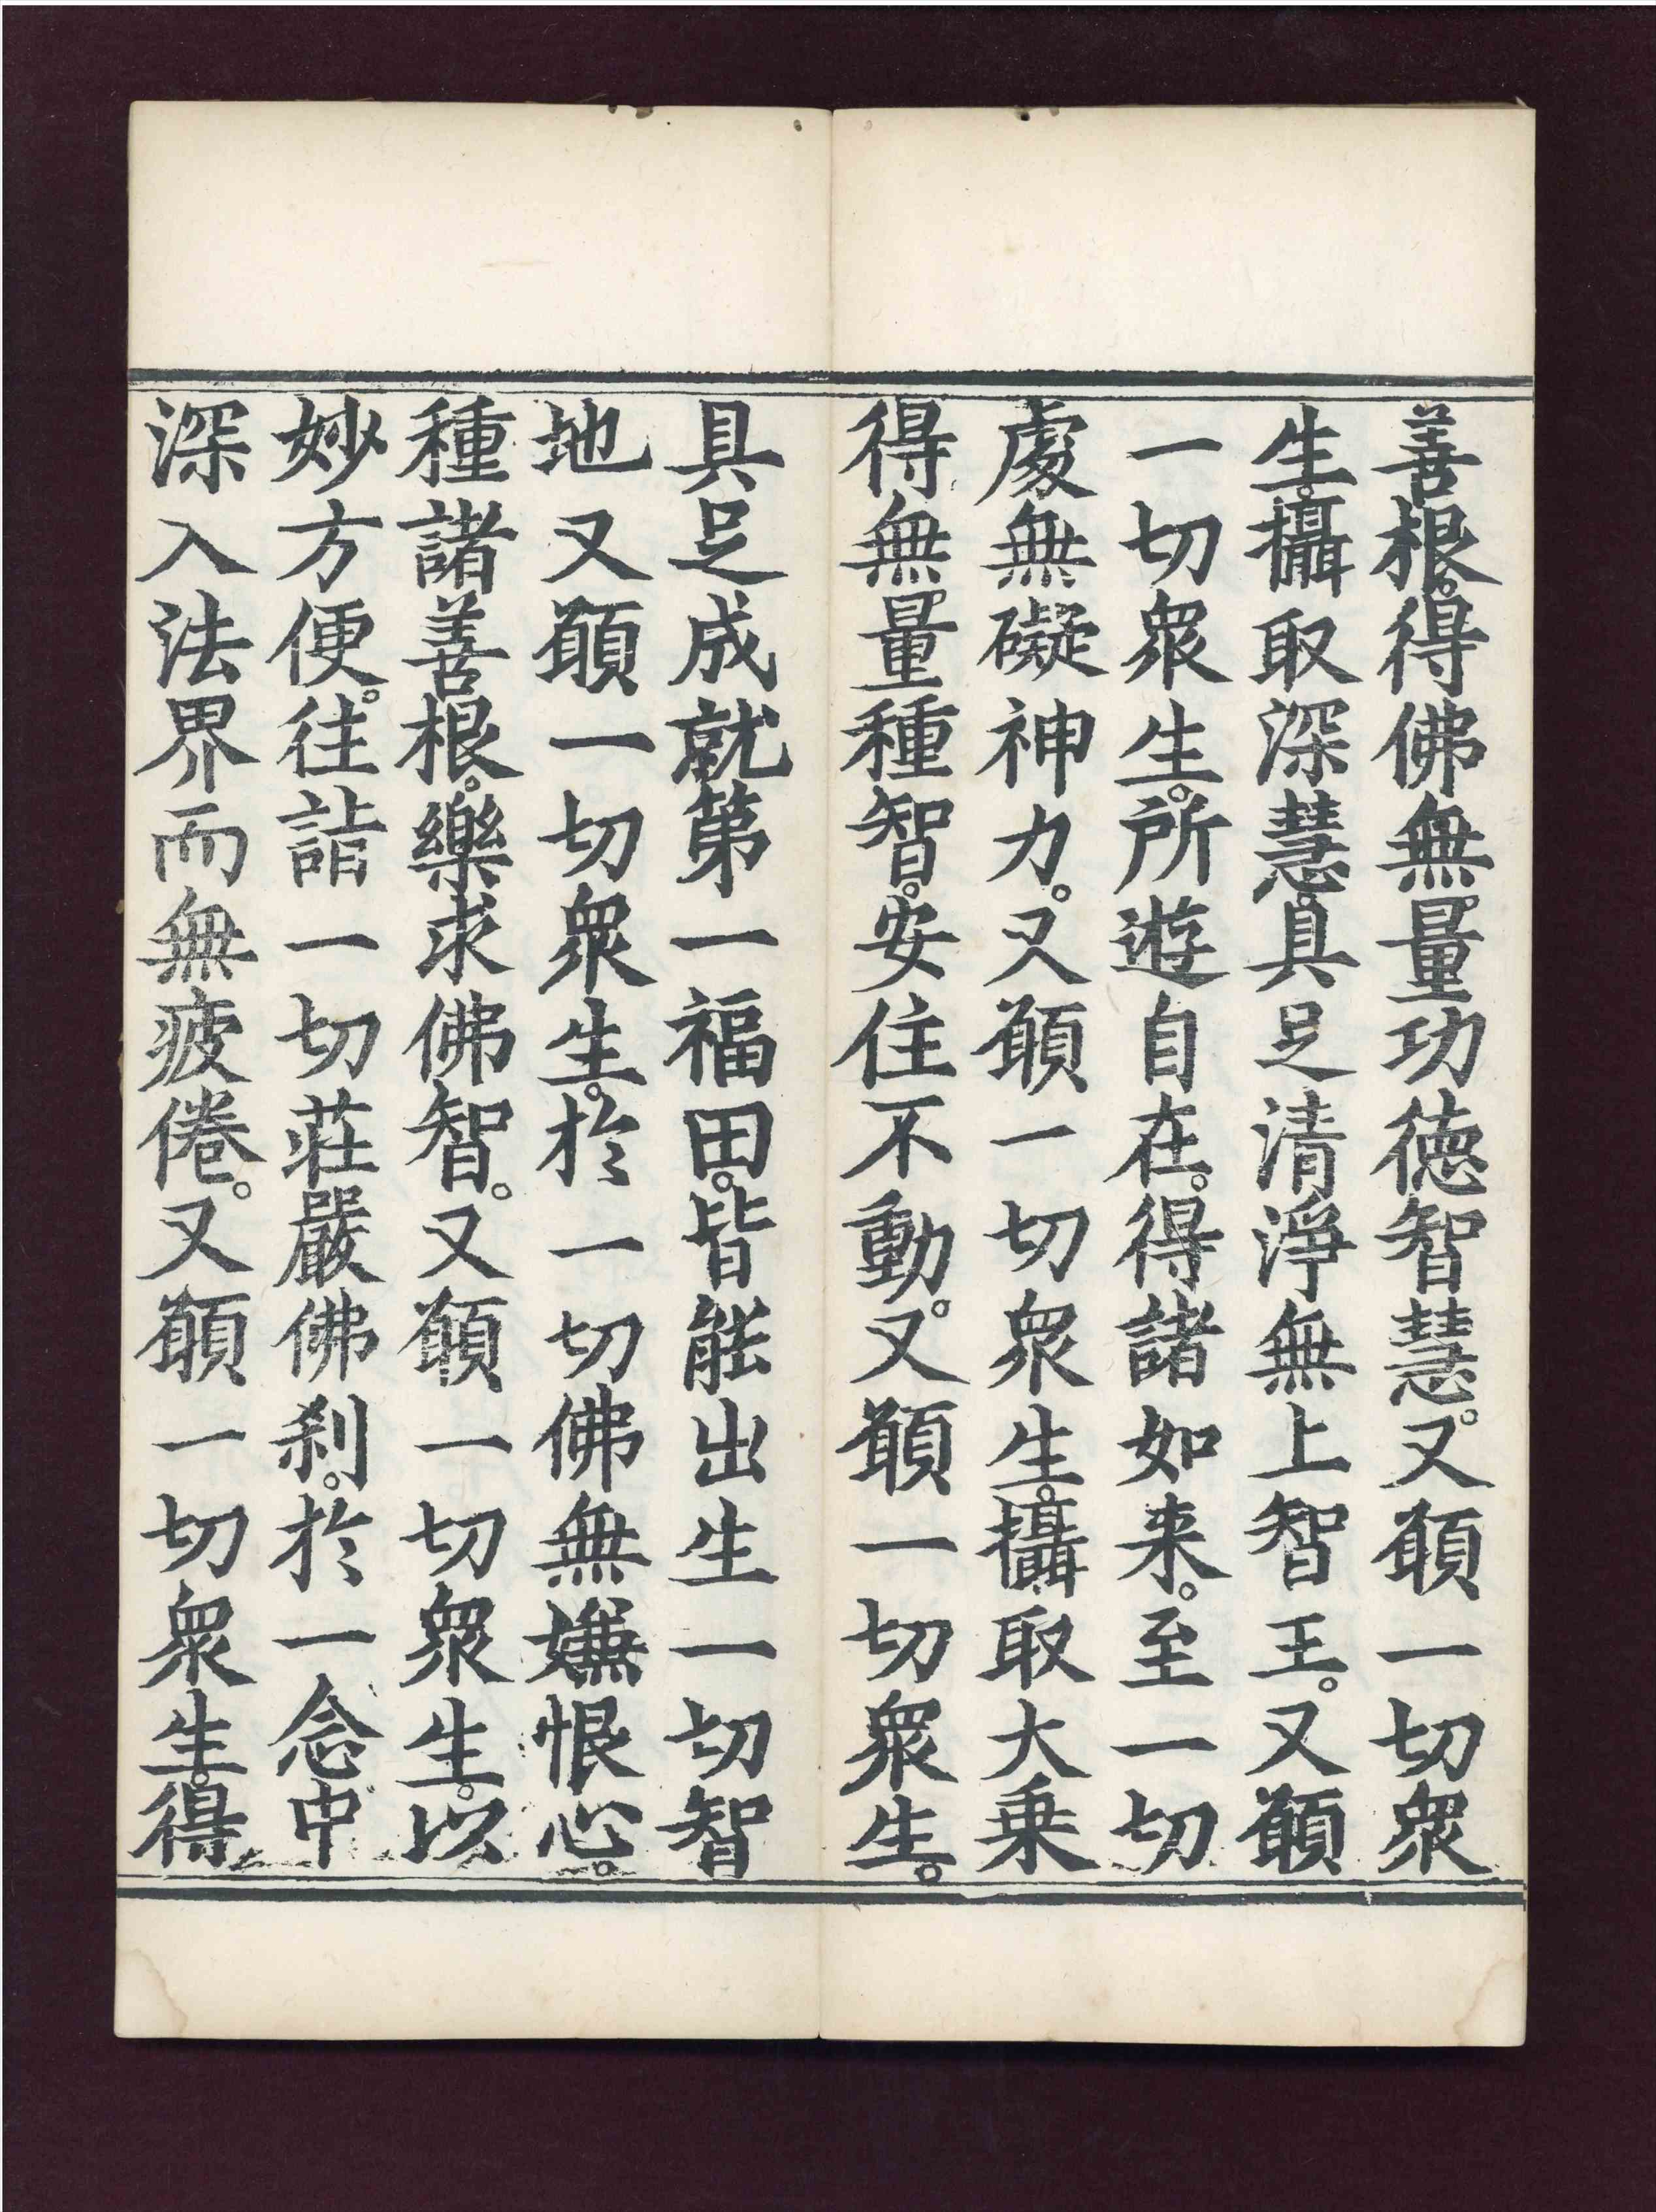 善根。得佛無量功德智慧。又願一切衆
生。攝取深慧。具足清淨無上智王。又願
一切衆生。所遊自在。得諸如来。至一切
處無礙神力。又願一切衆生。攝取大乗
得無量種智。安住不動。又願一切衆生。
具足成就第一福田。皆能出生一切智
地又願一切衆生。於一切佛無嫌恨心。
種諸善根。樂求佛智。又願一切衆生。以
妙方便。往詣一切莊嚴佛刹。於一念中
深入法界而無疲倦。又願一切衆生。得